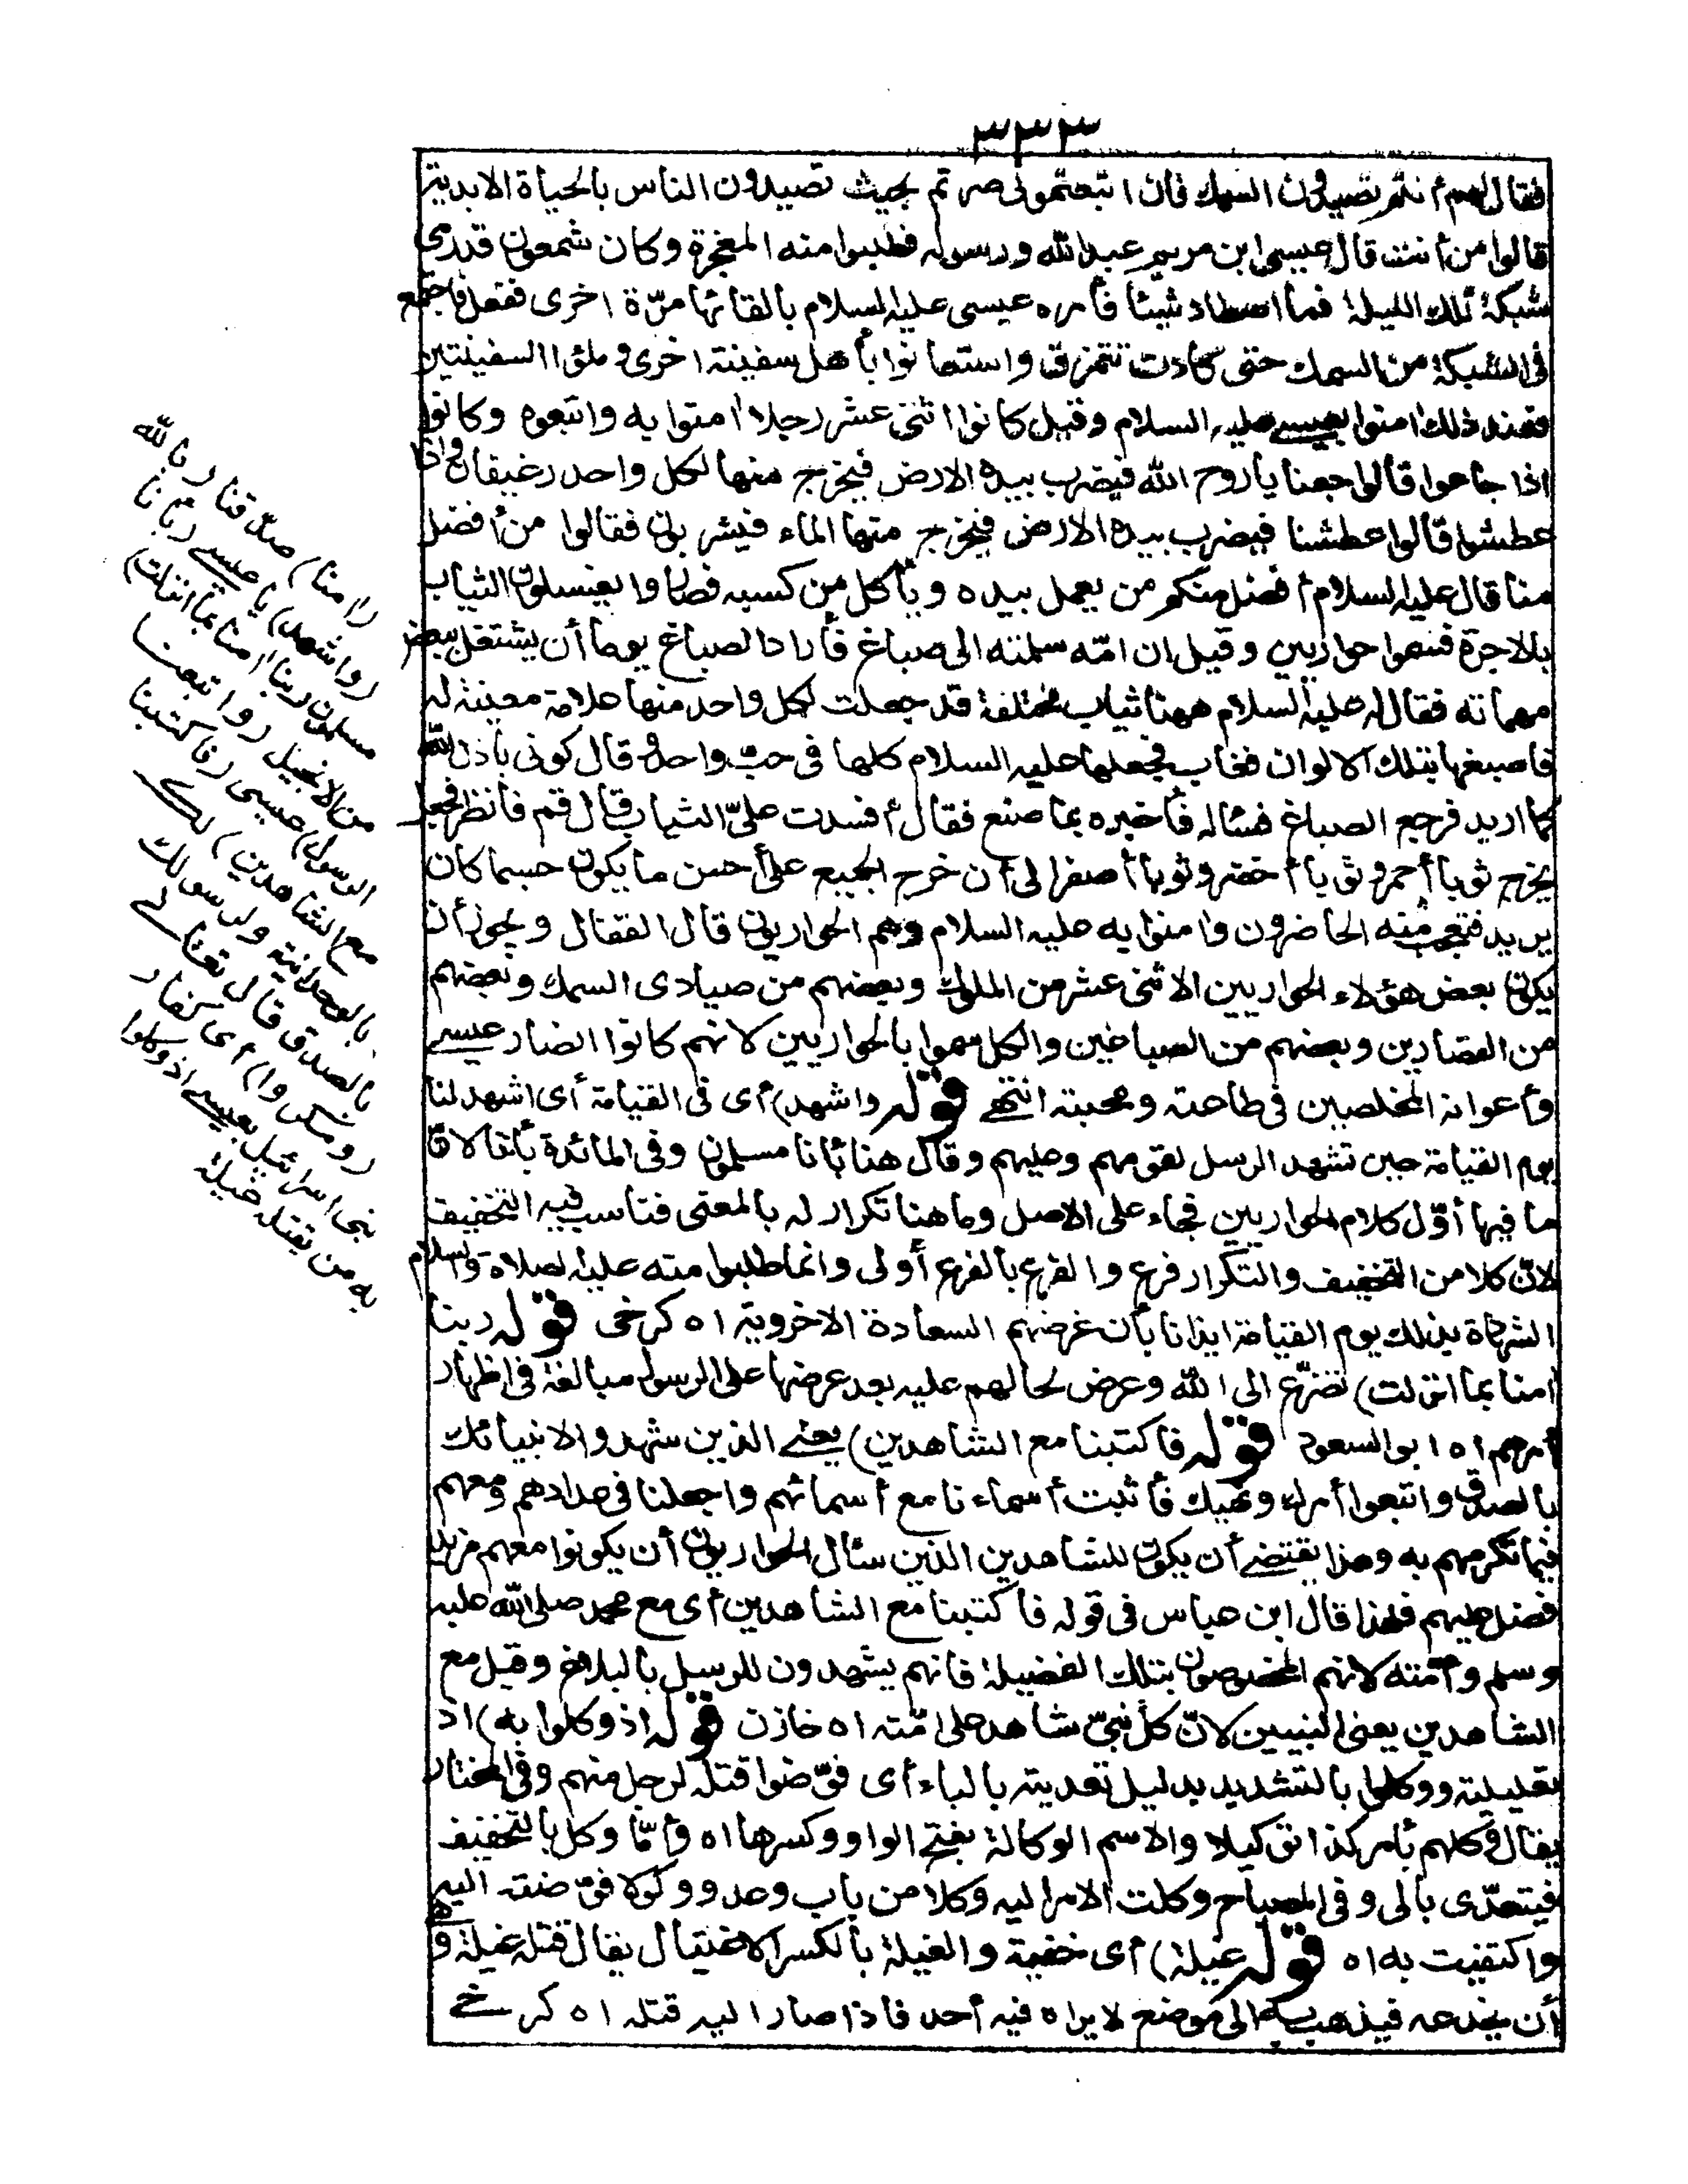 ٣٣٣
فقال لهم أنتم تصيدون السمك فان اتبعتمونى صرتم بحيث تصيدون الناس بالحياة الابدية
قالوا من أنت قال عيسى ابن مريم عبد الله ورسوله فطلبوا منه المعجزة وكان شمعون قد رمى
شبكة تلك الليلة فما اصطاد شيئا فأمره عيسى عليه السلام بالقائها مرّة اخرى ففعل فاجتمع
فى الشبكة من السمك حتى كادت تتمزق واستعانوا بأهل سفينة اخرى وملؤا السفينتين
فعند ذلك امنوا بعيسى عليه السلام وقيل كانوا اثنى عشر رجلا امنوا به واتبعوه وكانوا
اذا جاعوا قالوا جعنا ياروح الله فيضرب بيده الارض فيخرج منها لكل واحد رغيفان واذا
عطشوا قالوا عطشنا فيضرب بيده الارض فيخرج منها الماء فيشربون فقالوا من أفضل
منا قال عليه السلام أفضل منكم من يعمل بيده ويأكل من كسبه فصاروا يغسلون الثياب
بالاجرة فسموا حواريين وقيل ان امّه سلمته الى صباغ فأراد الصباغ يوما أن يشتغل ببعض
مهماته فقال له عليه السلام ههنا ثياب مختلفة قد جعلت لكل واحد منها علامة معينة له
فاصبغها بتلك الالوان فغاب فجعلها عليه السلام كلها فى حبّ واحد وقال كونى باذن الله
كما اريد فرجع الصباغ فسأله فأخبره بما صنع فقال أفسدت علىّ الثياب قال قم فانظر فجعل
يخرج ثوبا أحمر وثوبا أخضر وثوبا أصفر الى أن خرج الجميع على أحسن ما يكون حسبما كان
يريد فتعجب منه الحاضرون وامنوا به عليه السلام وهم الحواريون قال القفال ويجوز أن
يكون بعض هؤلاء الحواريين الاثنى عشر من الملوك وبعضهم من صيادى السمك وبعضهم
من القصارين وبعضهم من الصباغين والكل سموا بالحواريين لانهم كانوا انصار عيسى
وأعوانه المخلصين فى طاعته ومحبته انتهى قوله واشهد) أى فى القيامة أى اشهد لنا
يوم القيامة حين تشهد الرسل لقومهم وعليهم وقال هنا بأنا مسلمون وفى المائدة بأننا لانّ
ما فيها أوّل كلام الحواريين فجاء على الاصل وما هنا تكرار له بالمعنى فناسب فيه التخفيف
لانّ كلا من التخفيف والتكرار فرع والفرع بالفرع أولى وانما طلبوا منه عليه الصلاة والسلام
الشهادة بذلك يوم القيامة ايذانا بأن غرضهم السعادة الاخروية اه كرخى قوله ربنا
امنا بما انزلت) تضرّع الى الله وعرض لحالهم عليه بعد عرضها على الرسول مبالغة فى اظهار
أمرهم اه ابو السعود قوله فاكتبنا مع الشاهدين) يعنى الذين شهدوا لانبيائك
بالصدق واتبعوا أمرك ونهيك فأثبت أسماءنا مع أسمائهم واجعلنا فى عدادهم ومعهم
فيما تكرمهم به وهذا يقتضى أن يكون للشاهدين الذين سئال الحواريون أن يكونوا معهم مزيد
فضل عليهم فلهذا قال ابن عباس فى قوله فاكتبنا مع الشاهدين أى مع محمد صلى الله عليه
وسلم وأمّته لانهم المخصوصون بتلك الفضيلة فانهم يشهدون للرسل بالبلاغ وقيل مع
الشاهدين يعنى النبيين لانّ كل نبىّ شاهد على امّته اه خازن قوله اذ وكلوا به) اذ
تعليلية ووكلوا بالتشديد بدليل تعديته بالباء أى فوّضوا قتله لرجل منهم وفى المختار
يقال وكلهم بأمر كذا توكيلا والاسم الوكالة بفتح الواو وكسرها اه وأمّا وكل بالتخفيف
فيتعدّى بالى وفى المصباح وكلت الامر اليه وكلا من باب وعد ووكولا فوّضته اليه
واكتفيت به اه قوله غيلة) أى خفية والغيلة بالكسر الاغتيال يقال قتله غيلة وهى
أن يخدعه فيذهب به الى موضع لايراه فيه أحد فاذا صار اليه قتله اه كرخى
(امنا) صدّقنا (بالله
واشهد) يا عيسى (بأنا
مسلمون ربنا امنا بما انزلت)
من الانجيل (واتبعنا
الرسول) عيسى (فاكتبنا
مع الشاهدين) لك
بالوحدانية ولرسولك
بالصدق قال تعالى
(ومكروا) أى كفار
بنى اسرائيل بعيسى اذ وكلوا
به من يقتله غيلة